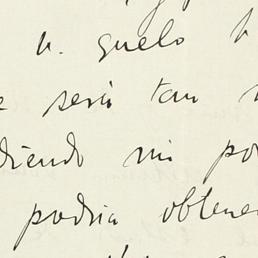 u. guelo h
e será tan
diendo mi po
podria obtene